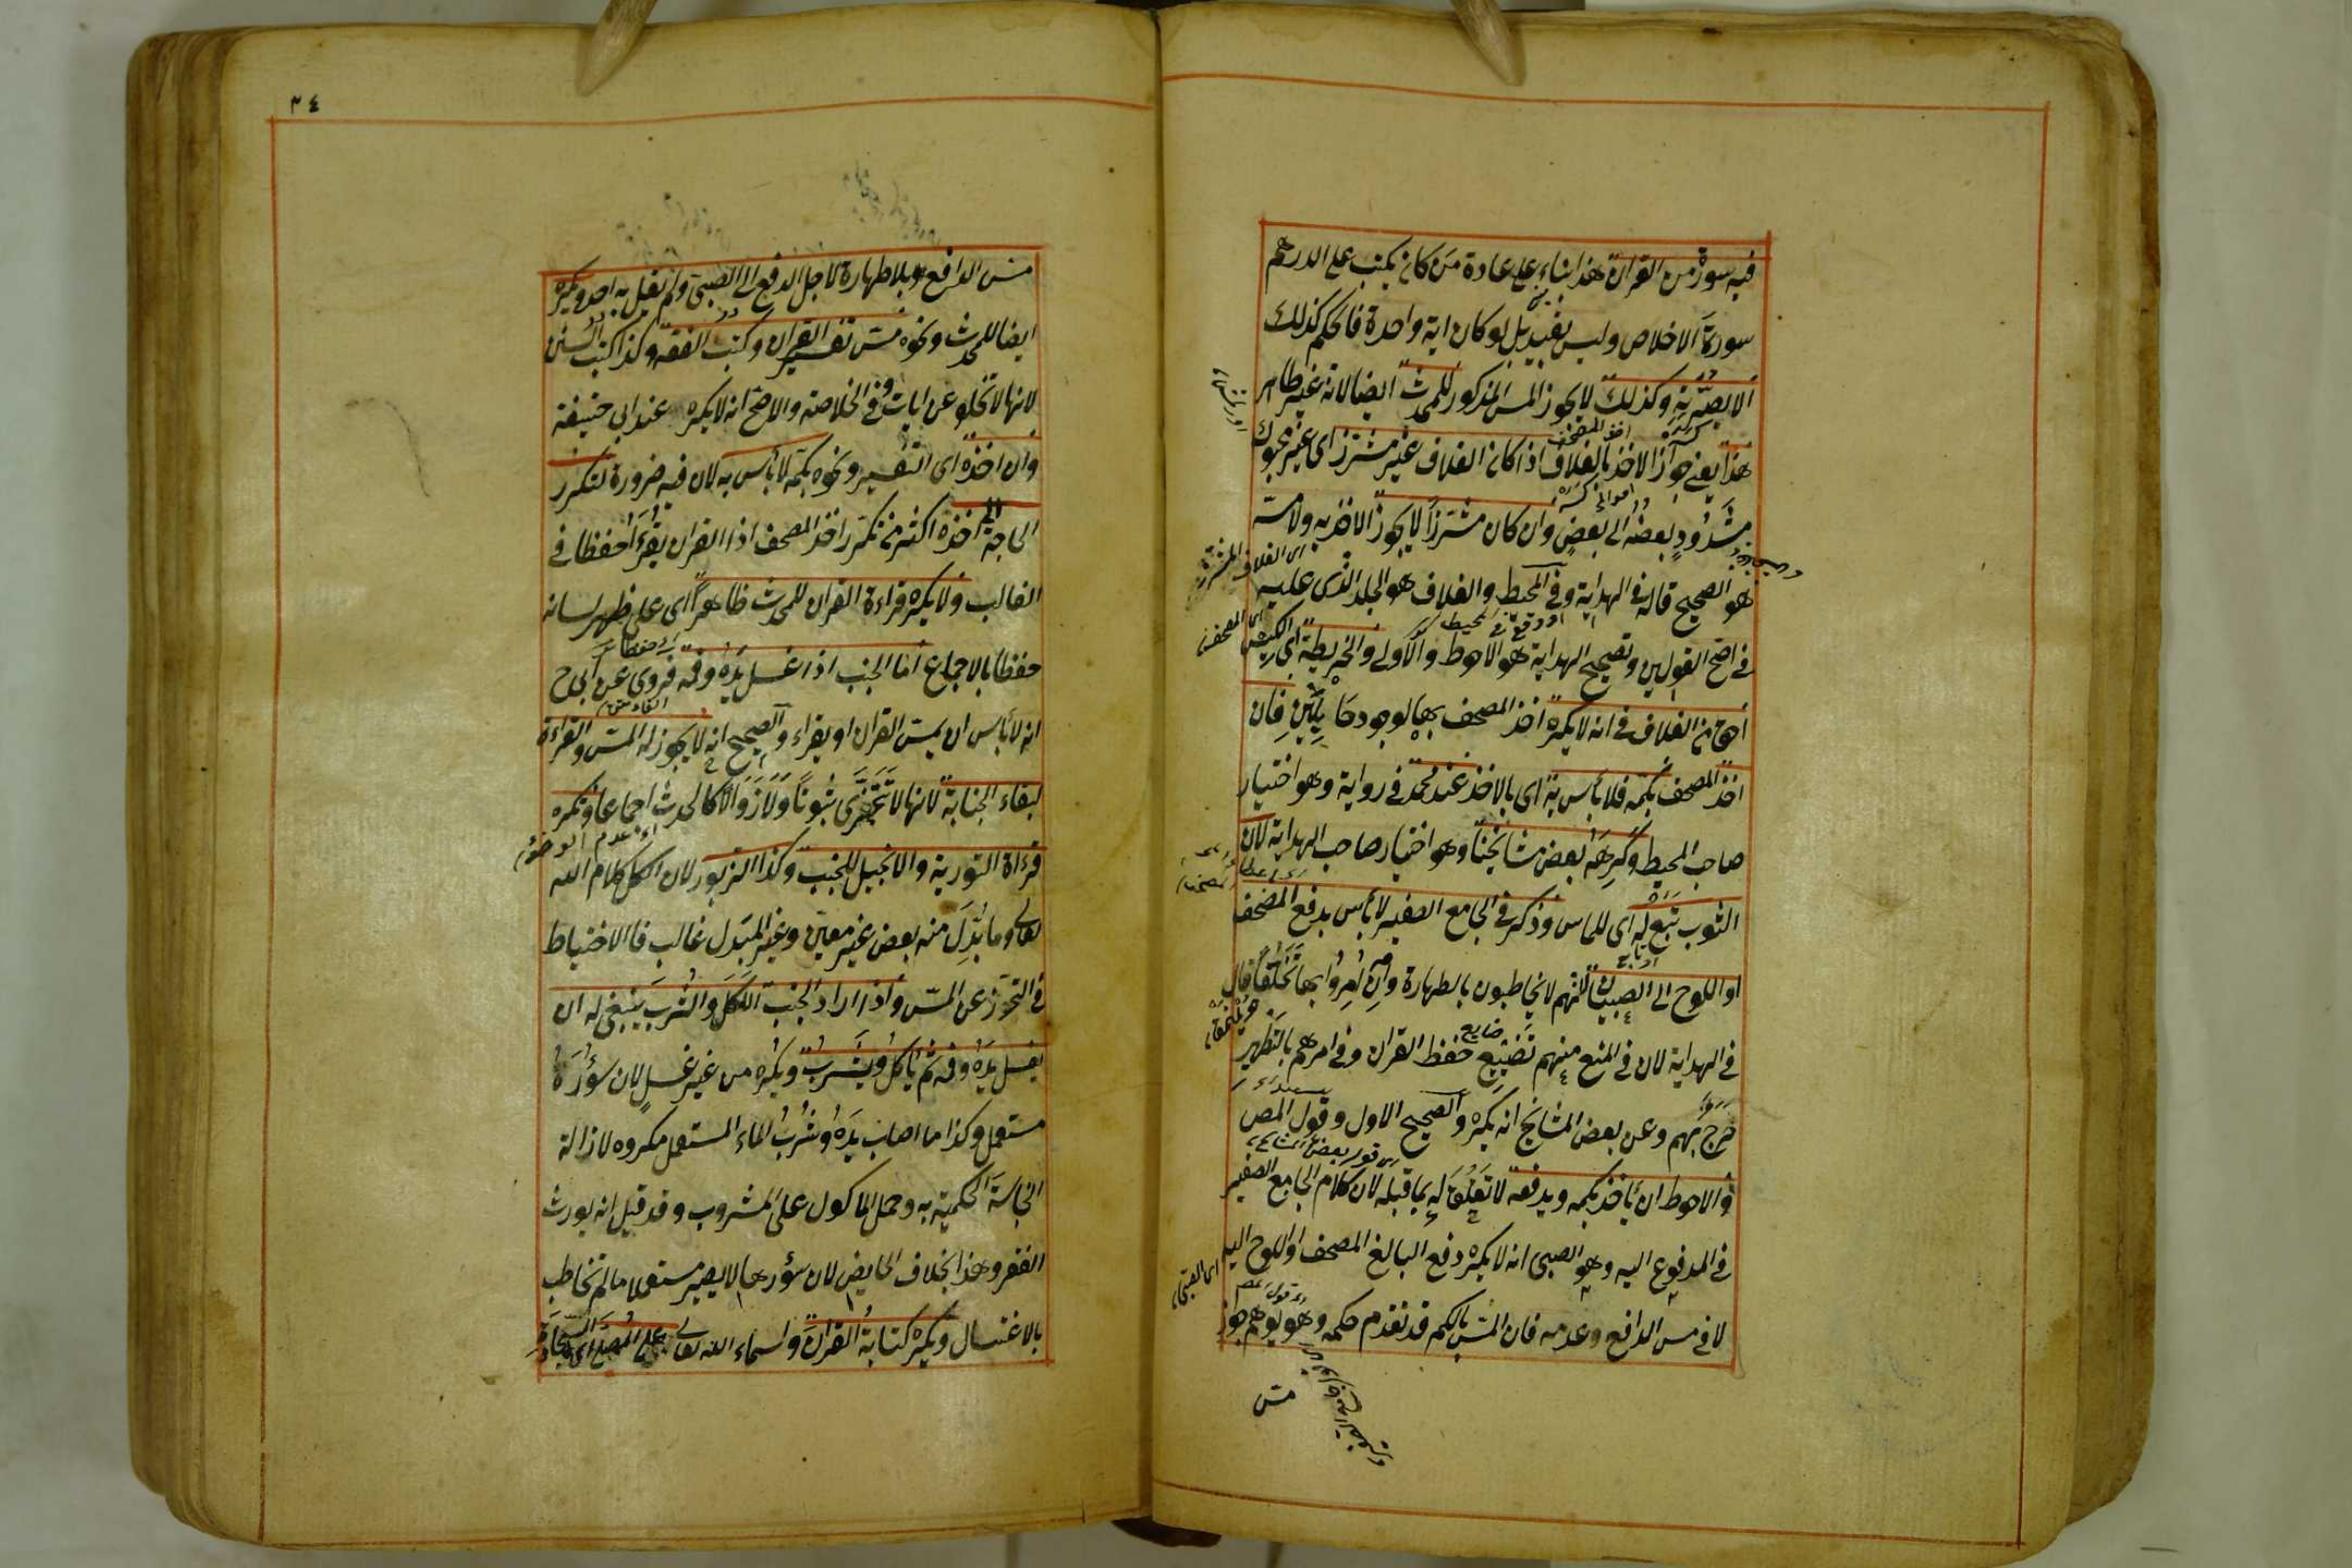 فيه سورة من القرآن هذا بناء على عادة من كان يكتب على الدرهم
سورة الاخلاص وليس بقيد بل لو كان اية واحدة فالحكم كذلك
الا بصرّته وكذلك لا يجوز المس المذكور للمحدث ايضا لانه غير طاهر
هذا يعني جواز الاخذ بالغلاف اذا كان الغلاف غير مشرز اى غير محبوك
مشدود بعضه الى بعض وان كان مشرزا لا يجوز الاخذ به ولا مسه
هو الصحيح قاله فى الهداية وفى المحيط والغلاف هو الجلد الذى عليه
فى اصح القولين وتصحيح الهداية هو الاحوط والاولى والخريطة اى الكيس
اهج من الغلاف فى انه لا يكره اخذ المصحف بها لوجود حائلين فان
اخذ المصحف بكمه فلا بأس به اى بالاخذ عند محمد فى رواية وهو اختيار
صاحب المحيط وكرهه بعض مشائخنا وهو اختيار صاحب الهداية لان
الثوب تبع له اى للماس وذكر فى الجامع الصغير لا بأس بدفع المصحف
او اللوح الى الصبيان لانهم لا يخاطبون بالطهارة وان امروا بها تخلقا قال
فى الهداية لان فى المنع منهم تضييع حفظ القرآن وفى امرهم بالتطهير
حرج بهم وعن بعض المشائخ انه يكره والصحيح الاول وقول المص
والاحوط ان يأخذ بكمه ويدفعه لا تعلق له بما قبله لان كلام الجامع الصغير
فى المدفوع اليه وهو الصبى انه لا يكره دفع البالغ المصحف او اللوح اليه
لا فى مس الدافع وعدمه فان المس بالكم قد تقدم حكمه وهو يوهم جواز
مس
٣٤
مس الدافع بلا طهارة لاجل الدفع الى الصبى ولم يقل به احد ويكره
ايضا للمحدث ونحوه مس تفسير القرآن وكتب الفقه وكذا كتب السنن
لانها لا تخلو عن ايات وفى الخلاصة والاصح انه لا يكره عند ابى حنيفة
وان اخذه اى التفسير ونحوه بكمه لا بأس به لان فيه ضرورة لتكرر
الحاجة الى اخذه اكثر من تكرر اخذ المصحف اذ القرآن يقرء حفظا فى
الغالب ولا يكره قراءة القرآن للمحدث ظاهرا اى على ظهر لسانه
حفظا بالاجماع اما الجنب اذا غسل يده وفمه فروى عن ابى ح
انه لا بأس ان يمس القرآن او يقراء والصحيح انه لا يجوز له المس والقراءة
لبقاء الجنابة لانها لا تتجزى ثبوتا ولا زوالا كالحدث اجماعا ويكره
قراءة التورية والانجيل للجنب وكذا الزبور لان الكل كلام الله
تعالى وما بدل منه بعض غير معين وغير المبدل غالب فالاحتياط
فى التحرز عن المس واذا اراد الجنب الاكل والشرب ينبغى له ان
يغسل يده وفمه ثم يأكل ويشرب ويكره من غير غسل لان سؤره
مستعمل وكذا ما اصاب يده وشرب الماء المستعمل مكروه لازالة
النجاسة الحكمية به وحمل الماكول على المشروب وقد قيل انه يورث
الفقر وهذا بخلاف الحايض لان سؤرها لا يصير مستعملا ما لم تخاطب
بالاغتسال ويكره كتابة القرآن واسماء الله تعالى على المصلى اى السجادة